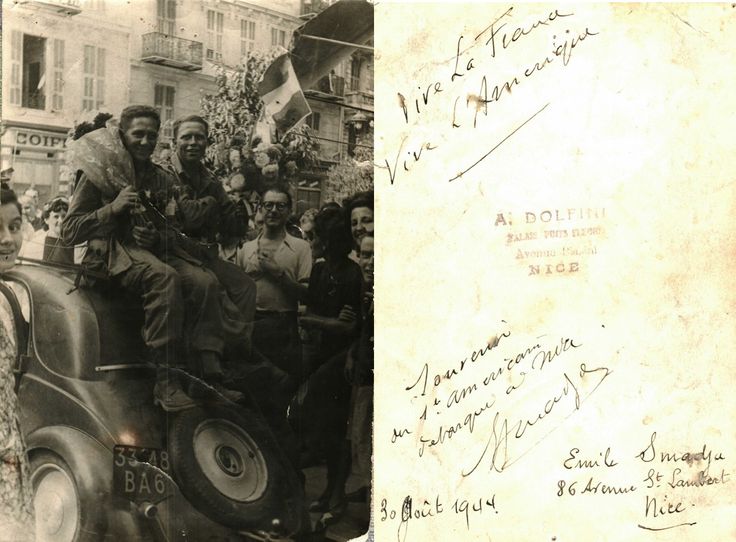 COIF
33 48
BA6
Vive La France
Vive L'Amérique
A. DOLFINI
PALAIS
Avenue
NICE
Souvenir
du 1er américain
débarqué à Nice
Emile Smadja
86 Avenue St Lambert
Nice
30 Août 1944